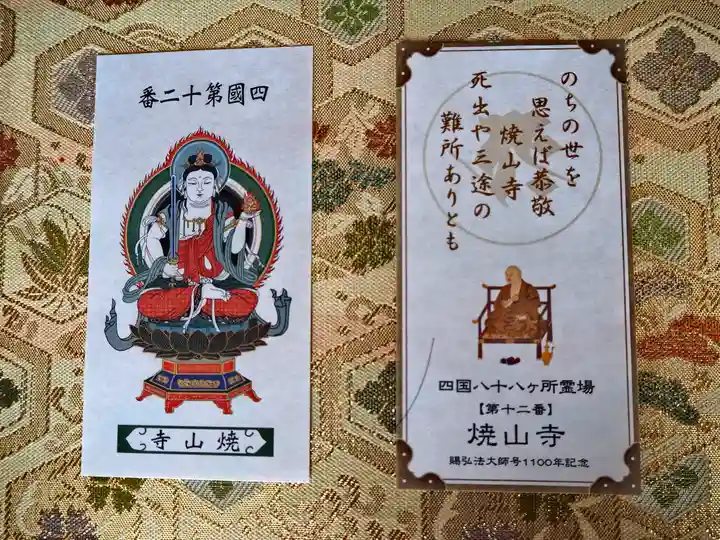 四國第十二番
焼山寺
のちの世を
思えば恭敬
焼山寺
死出や三途の
難所ありとも
四国八十八ヶ所霊場
【第十二番】
焼山寺
賜弘法大師号1100年記念